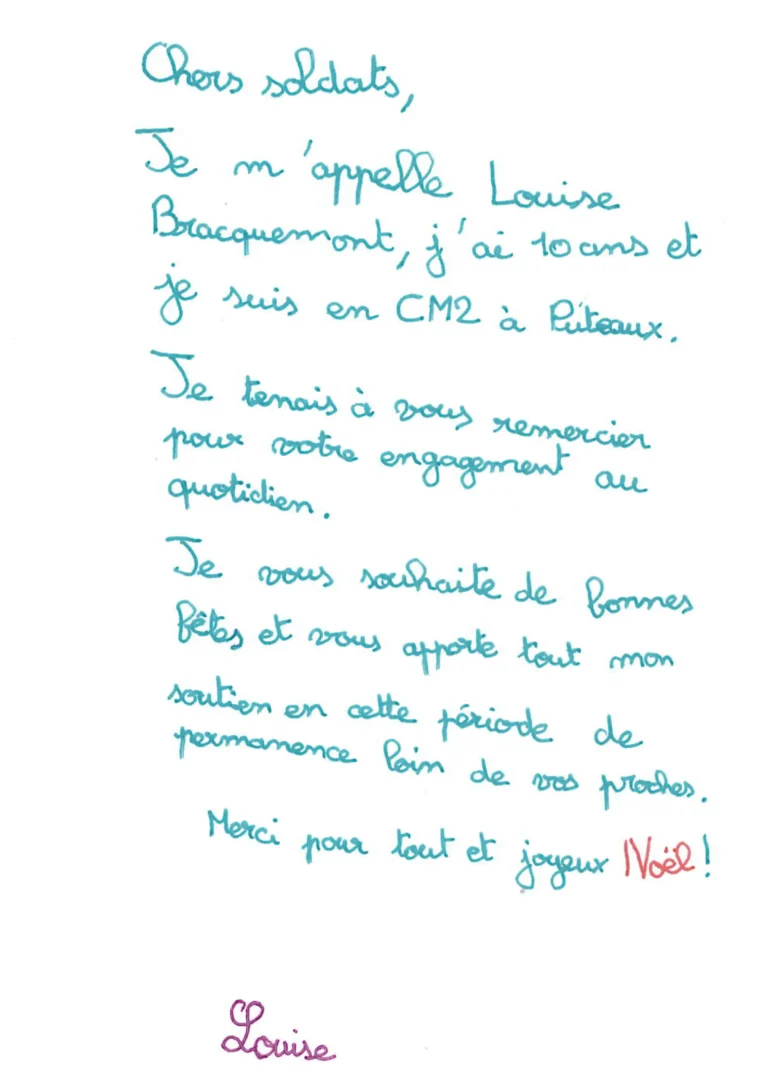 Chers soldats,
Je m'appelle Louise
Bracquemont, j'ai 10 ans et
je suis en CM2 à Puteaux.
Je tenais à vous remercier
pour votre engagement au
quotidien.
Je vous souhaite de bonnes
fêtes et vous apporte tout mon
soutien en cette période de
permanence loin de vos proches.
Merci pour tout et joyeux Noël !
Louise